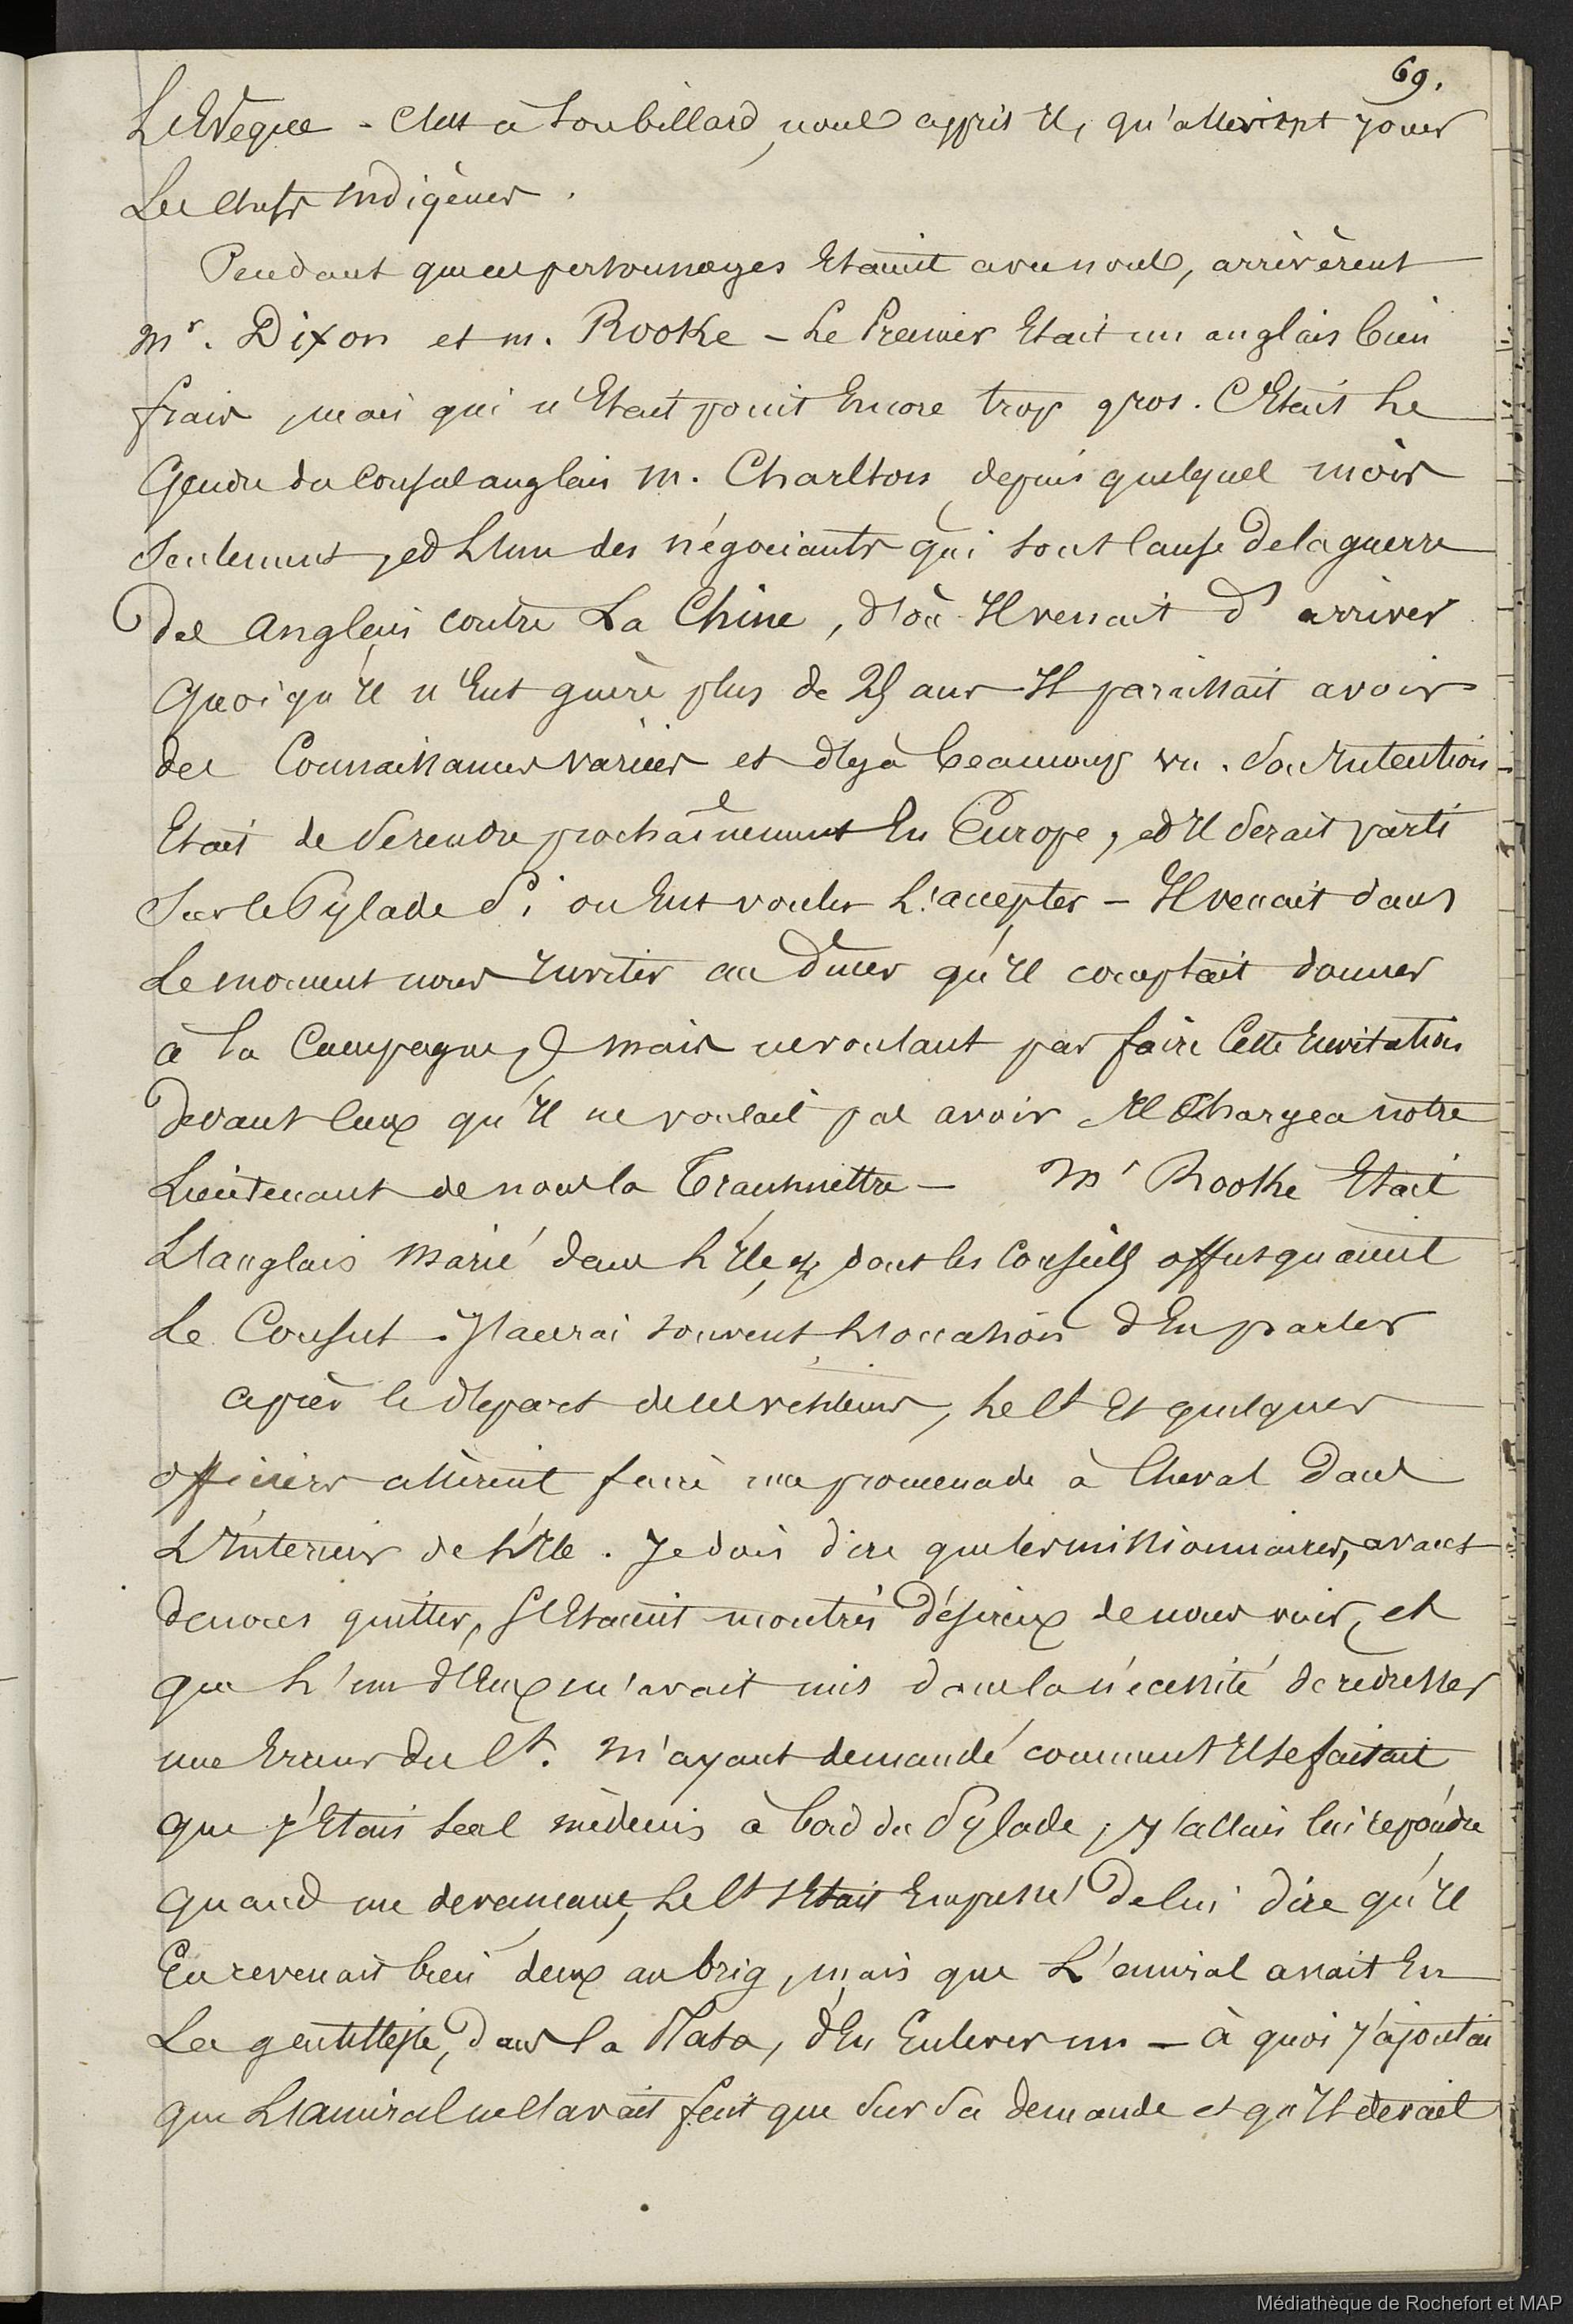 69.
L'Evêque - C'est à son billard, nous apprit il, qu'allaient jouer
Les Chefs Indigènes.
Pendant que ces personnages Etaient avec nous, arrivèrent
Mr. Dixon et m. Rooke - Le Premier Etait un anglais bien
frais, mais qui n'Etait point Encore trop gros. C'Etait Le
Gendre du Consul anglais M. Charlton, depuis quelques mois
Seulement, et L'un des négociants qui sont Cause de la guerre
Des Anglais contre La Chine, d'où Il venait d'arriver
Quoiqu'il n'Eut guère plus de 25 ans Il paraissait avoir
des Connaissances variées et déjà beaucoup vu. Son Intention
Etait de Se rendre prochainement En Europe, et Il Serait parti
Sur le Pylade Si on Eut voulu L'accepter - Il venait dans
Le moment nous Inviter au Dîner qu'Il comptait donner
à la Campagne, mais ne voulant pas faire Cette Invitation
Devant Ceux qu'Il ne voulait pas avoir Il Chargea notre
Lieutenant de nous la Transmettre - Mr Rooke Etait
L'anglais Marié dans L'Ile et dont les Conseils offusquaient
Le Consul. J'aurai souvent L'occasion d'En parler
après le départ de ces visiteurs, Le Ct Et quelques
officiers allèrent faire une promenade à Cheval dans
L'Intérieur de L'Ile. Je dois dire que les missionnaires, avant
de nous quitter, S'Etaient montrés Désireux de nous voir, et
que L'un d'Eux m'avait mis dans la nécessité de redresser
une Erreur du Ct. M'ayant demandé comment Il se faisait
que j'Etais Seul médecin à bord du Pylade, j'allais lui répondre
quand me devançant, Le Ct s'Etait Empressé De lui dire qu'Il
En revenait bien deux au brig, mais que L'amiral avait Eu
La gentillesse, dans la Plata, d'En Enlever un - à quoi j'ajoutai
que L'amiral ne l'avait fait que Sur Sa demande et qu'Il devait
Médiathèque de Rochefort et MAP